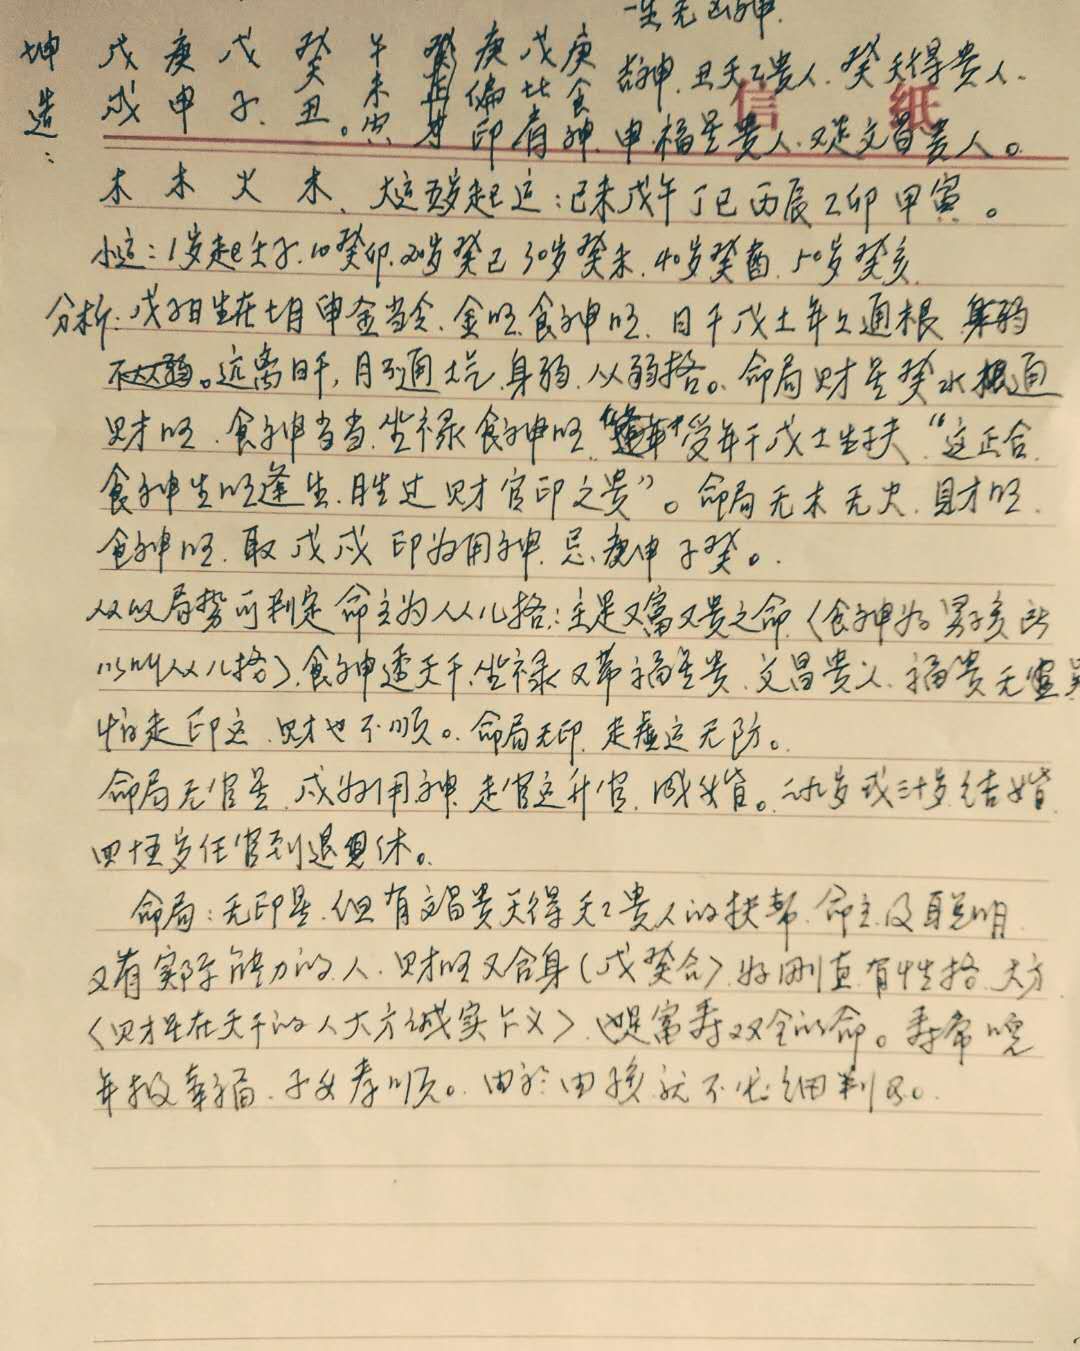 一生无凶神.
坤 戊 庚 戊 癸 午 癸 庚 戊 庚 吉神.丑天乙贵人.癸天得贵人.
造: 戌 申 子. 丑。未空 正才 偏印 比肩 食神. 申.福星贵人.又是文昌贵人。
信 纸
木 木 火 木. 大运五岁起运:己未戊午丁巳丙辰乙卯甲寅。
小运:1岁起壬子.10癸卯.20岁癸巳30岁癸未.40岁癸酉.50岁癸亥.
分析:戊子日生在七月申金当令.金旺食神旺.日干戊土年上通根 身弱
不太弱。远离日干,月不通土气.身弱.从弱格。命局财星癸水根通
财旺.食神当当.坐禄食神旺"逢年"受年干戊土生扶"这正合
食神生旺逢生.胜过财官印之贵"。命局无木无火.且才旺.
食神旺.取戊戌印为用神.忌.庚申子癸。.
从以局势可判定命主为从儿格:主是又富又贵之命(食神为男孩所
以叫从儿格).食神透天干.坐禄又带福星贵.文昌贵人.福贵无
怕走印运.财也不顺。命局无印.走运无防。
命局无官星.戊为用神.走官运升官.或结婚。二九岁或三十岁结婚
四十五岁任官到退休。
命局:无印星.但有文昌贵天得天乙贵人的扶帮.命主及聪明.
又有实际能力的人.财旺又合身(戊癸合).好刚直.有性格.大方
(财星在天干的人大方诚实上义).也是富寿双全的命。寿常晚
年极幸福.子女孝顺。由于由孩就不必细判了。